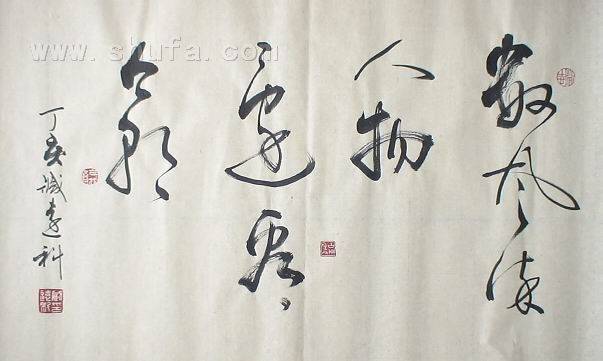 數风流
人物
還看
今朝
丁亥
www.shufa.com